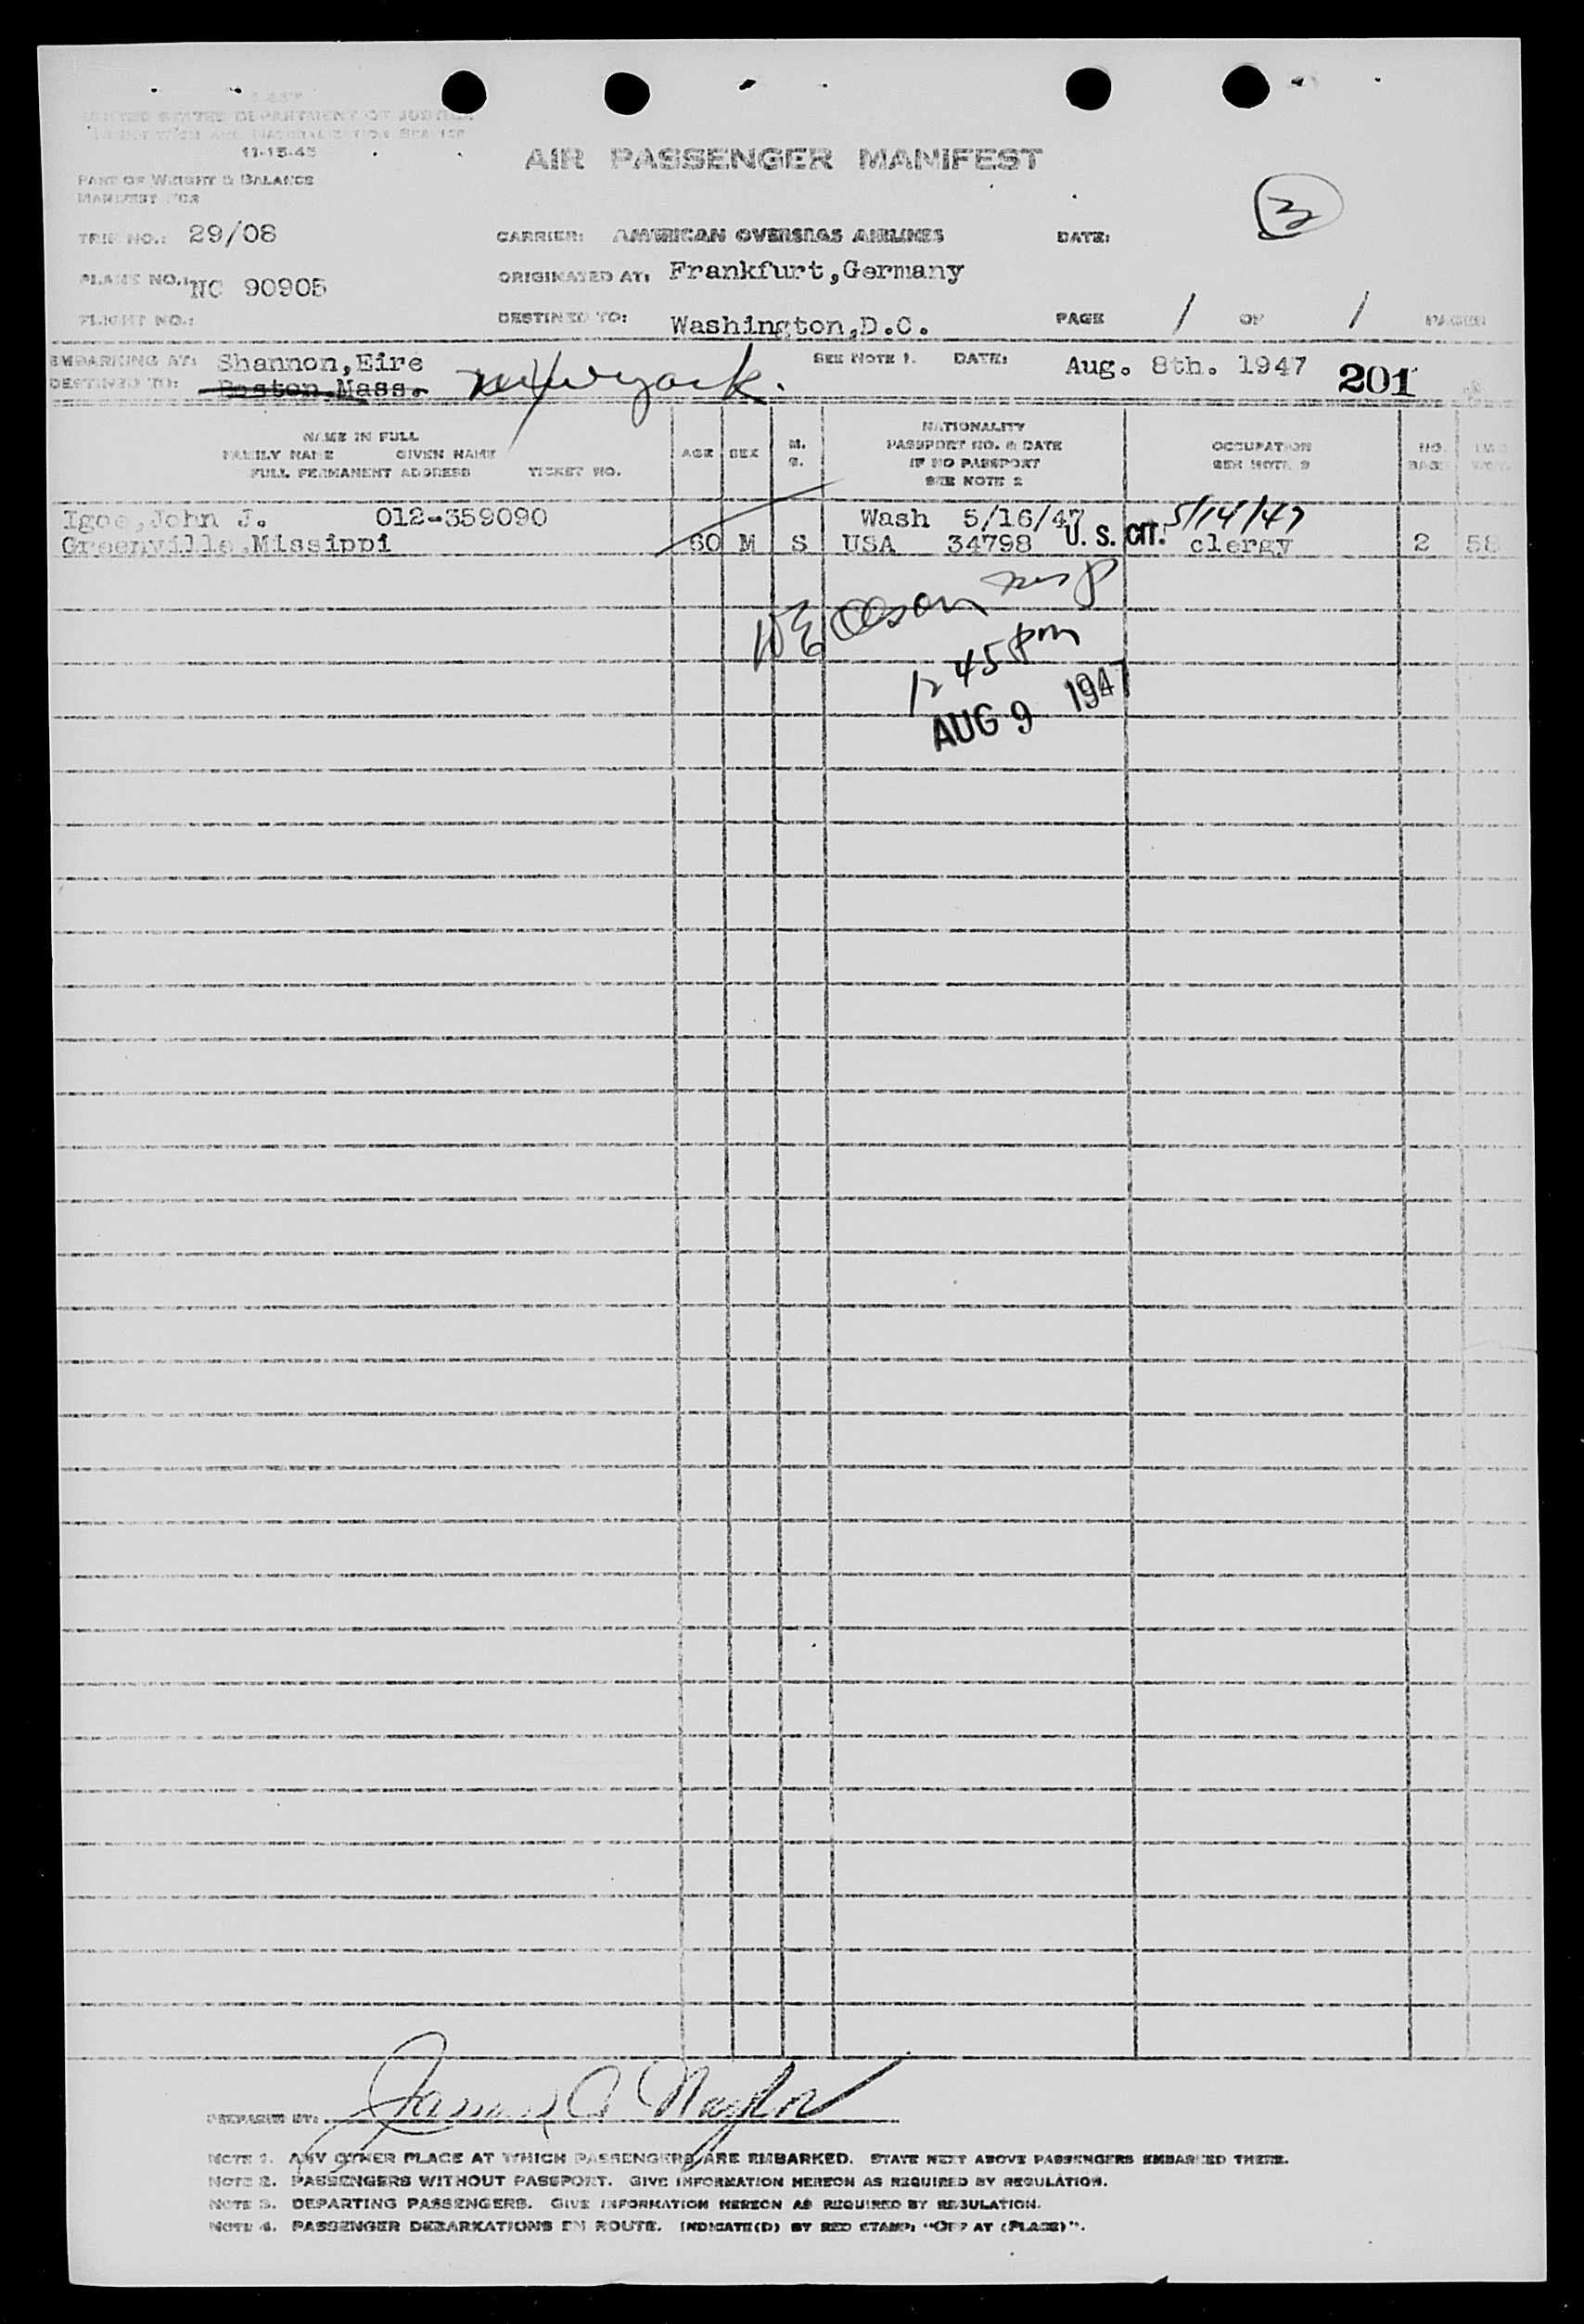 UNITED STATES DEPARTMENT OF JUSTICE
IMMIGRATION AND NATURALIZATION SERVICE
11-15-43
AIR PASSENGER MANIFEST
PART OF WEIGHT & BALANCE
MANIFEST FOR
3
TRIP NO.: 29/08 CARRIER: AMERICAN OVERSEAS AIRLINES DATE:
PLANE NO.: NC 90905 ORIGINATED AT: Frankfurt,Germany
FLIGHT NO.: DESTINED TO: Washington,D.C. PAGE 1 OF 1 PAGES
EMBARKING AT: Shannon,Eire SEE NOTE 1. DATE: Aug. 8th. 1947 201
DESTINED TO: Boston.Mass. New york.
NAME IN FULL
FAMILY NAME GIVEN NAME
FULL PERMANENT ADDRESS TICKET NO.
AGE SEX M. S.
NATIONALITY
PASSPORT NO. & DATE
IF NO PASSPORT
SEE NOTE 2
OCCUPATION
SEE NOTE 3
NO.
BAGS
Igoe,John J. 012-359090 Wash 5/16/47 5/14/47
Greenville,Missippi 60 M S USA 34798 U. S. CIT. clergy 2 58
Olson
12 45 pm
AUG 9 1947
PREPARED BY: James A Naylor
NOTE 1. ANY OTHER PLACE AT WHICH PASSENGERS ARE EMBARKED. STATE NEXT ABOVE PASSENGERS EMBARKED THERE.
NOTE 2. PASSENGERS WITHOUT PASSPORT. GIVE INFORMATION HEREON AS REQUIRED BY REGULATION.
NOTE 3. DEPARTING PASSENGERS. GIVE INFORMATION HEREON AS REQUIRED BY REGULATION.
NOTE 4. PASSENGER DEBARKATIONS EN ROUTE. INDICATE(D) BY RED STAMP: "OFF AT (PLACE)".